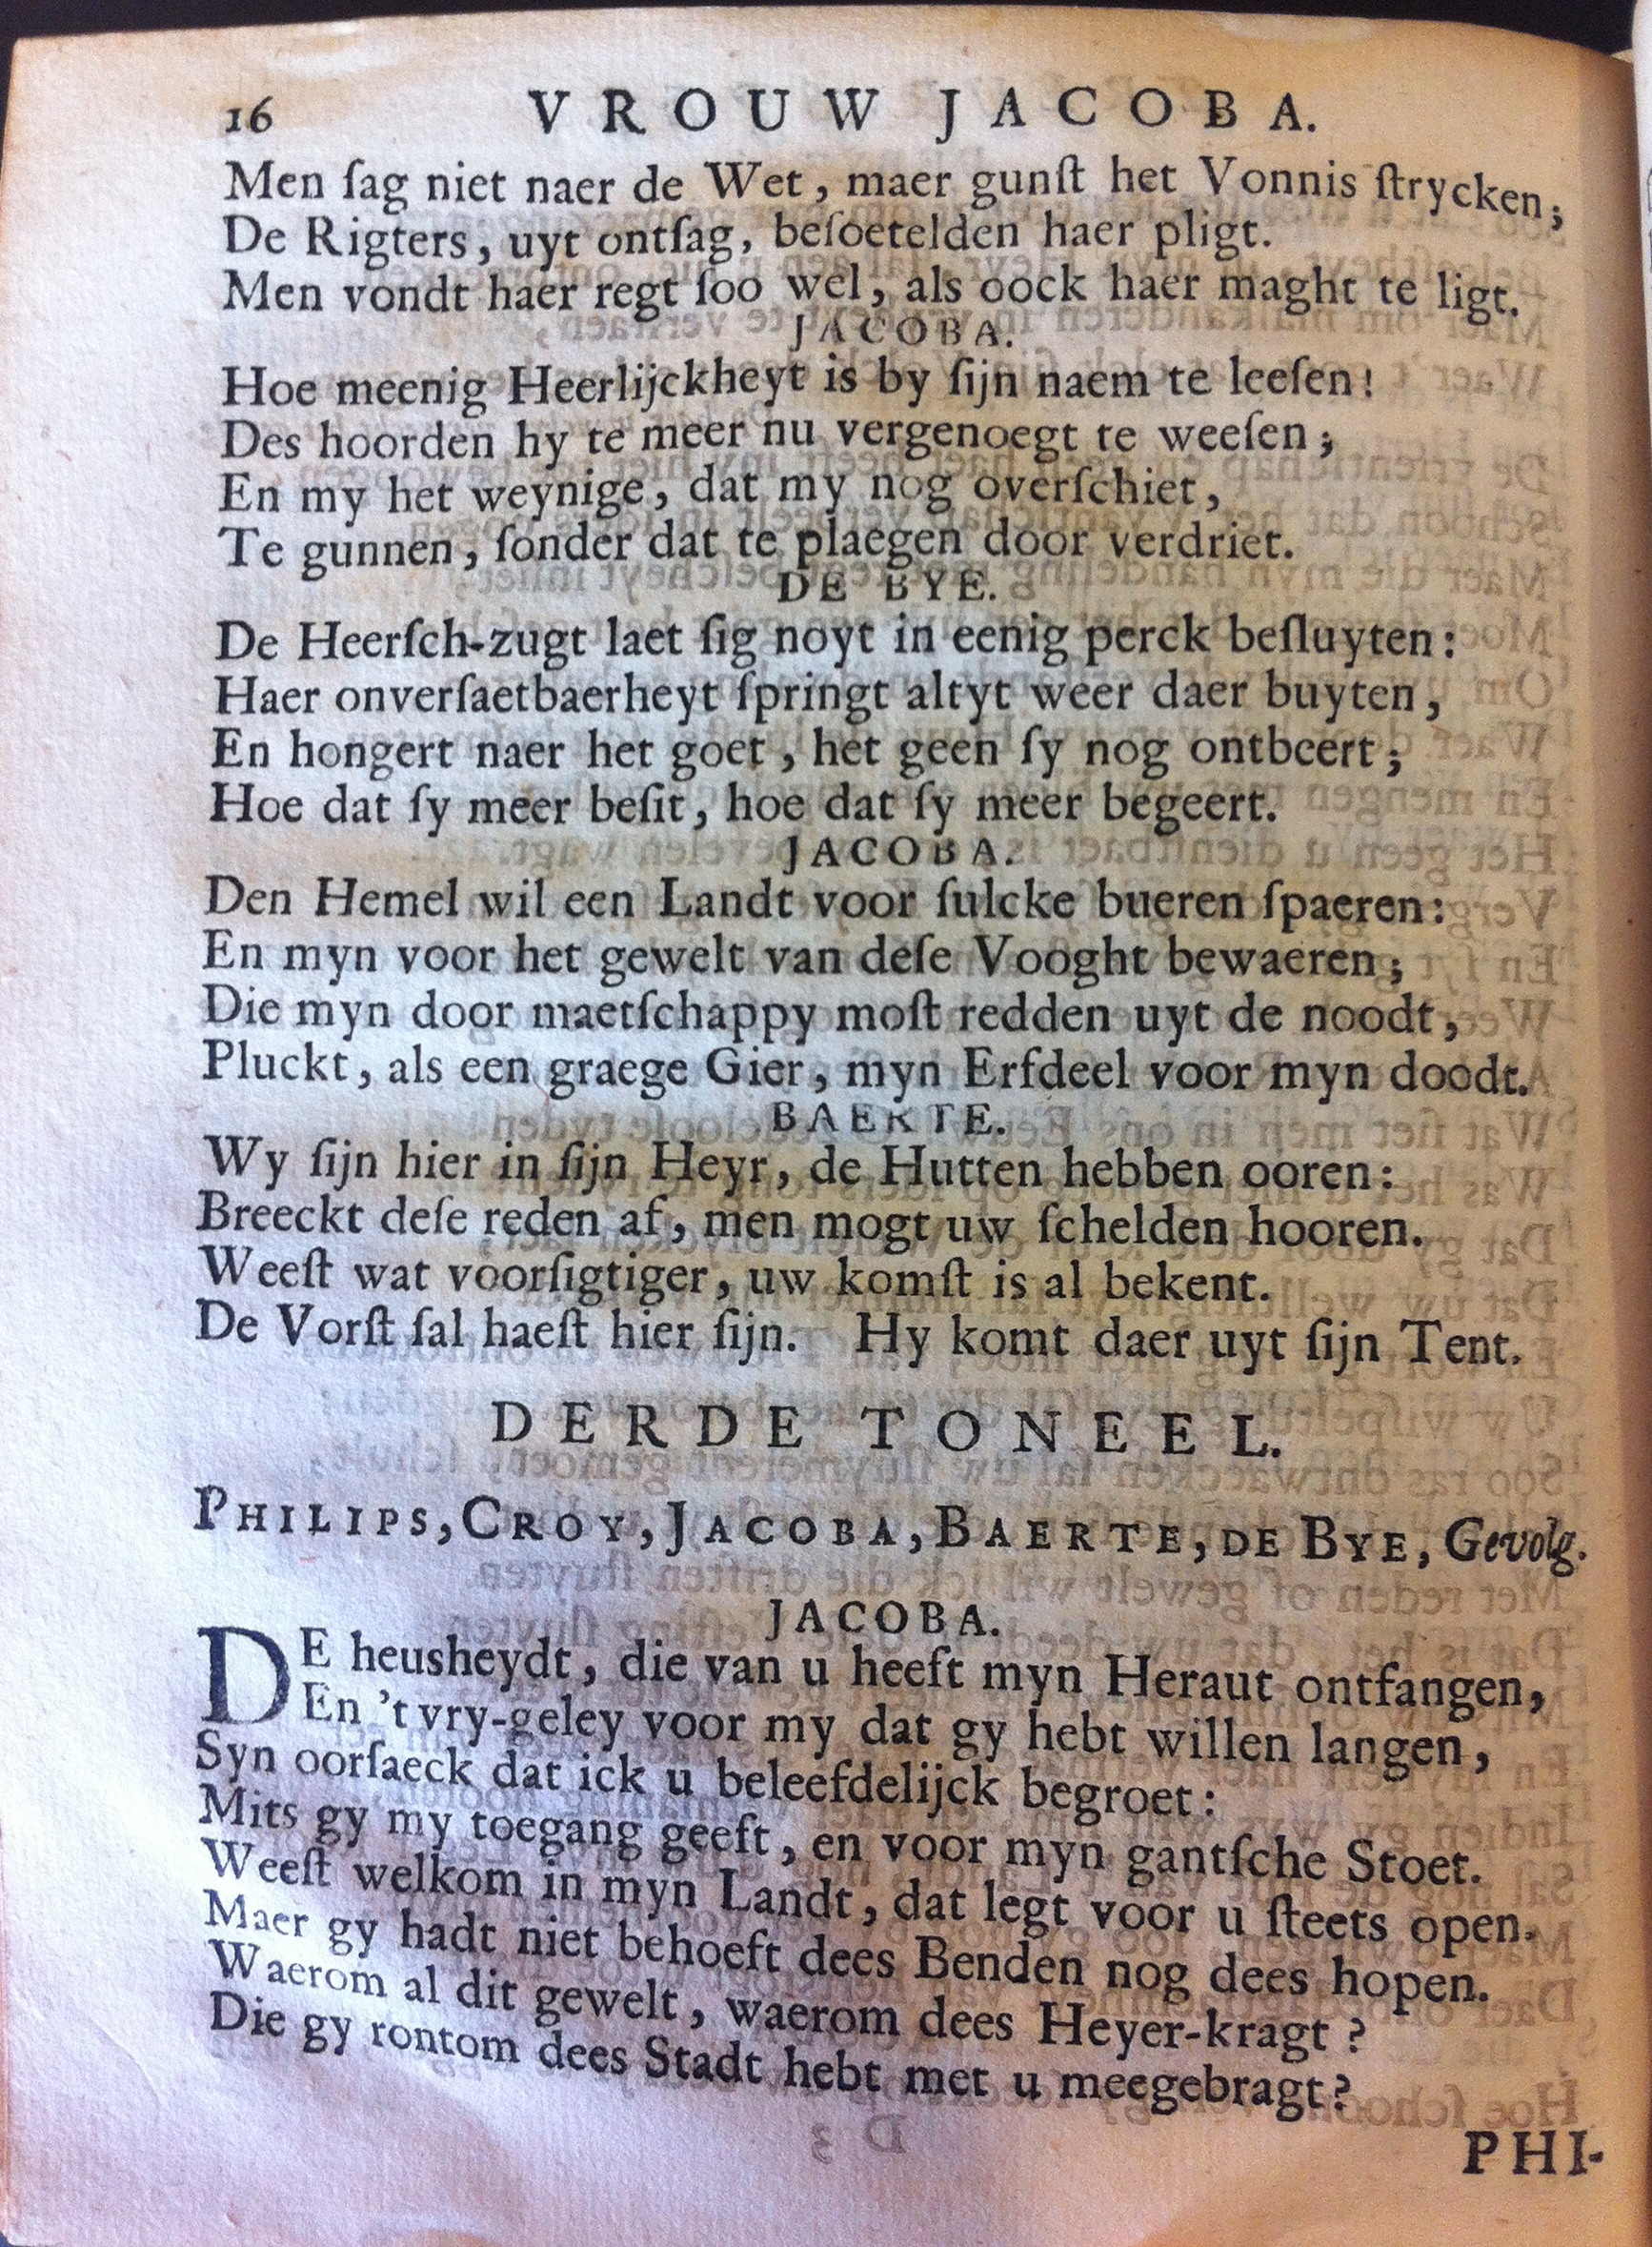 16 VROUW JACOBA.
Men ſag niet naer de Wet, maer gunſt het Vonnis ſtrycken;
De Rigters, uyt ontſag, beſoetelden haer pligt.
Men vondt haer regt ſoo wel, als oock haer maght te ligt.
JACOBA.
Hoe meenig Heerlijckheyt is by ſijn naem te leeſen!
Des hoorden hy te meer nu vergenoegt te weeſen;
En my het weynige, dat my nog overſchiet,
Te gunnen, ſonder dat te plaegen door verdriet.
DE BYE.
De Heerſch-zugt laet ſig noyt in eenig perck beſluyten:
Haer onverſaetbaerheyt ſpringt altyt weer daer buyten,
En hongert naer het goet, het geen ſy nog ontbeert;
Hoe dat ſy meer beſit, hoe dat ſy meer begeert.
JACOBA.
Den Hemel wil een Landt voor ſulcke bueren ſpaeren:
En myn voor het gewelt van deſe Vooght bewaeren;
Die myn door maetſchappy moſt redden uyt de noodt,
Pluckt, als een graege Gier, myn Erfdeel voor myn doodt.
BAERTE.
Wy ſijn hier in ſijn Heyr, de Hutten hebben ooren:
Breeckt deſe reden af, men mogt uw ſchelden hooren.
Weeſt wat voorſigtiger, uw komſt is al bekent.
De Vorſt ſal haeſt hier ſijn. Hy komt daer uyt ſijn Tent.
DERDE TONEEL.
PHILIPS, CROY, JACOBA, BAERTE, DE BYE, Gevolg.
JACOBA.
DE heusheydt, die van u heeft myn Heraut ontfangen,
En 't vry-geley voor my dat gy hebt willen langen,
Syn oorſaeck dat ick u beleefdelijck begroet:
Mits gy my toegang geeft, en voor myn gantſche Stoet.
Weeſt welkom in myn Landt, dat legt voor u ſteets open.
Maer gy hadt niet behoeft dees Benden nog dees hopen.
Waerom al dit gewelt, waerom dees Heyer-kragt?
Die gy rontom dees Stadt hebt met u meegebragt?
PHI-